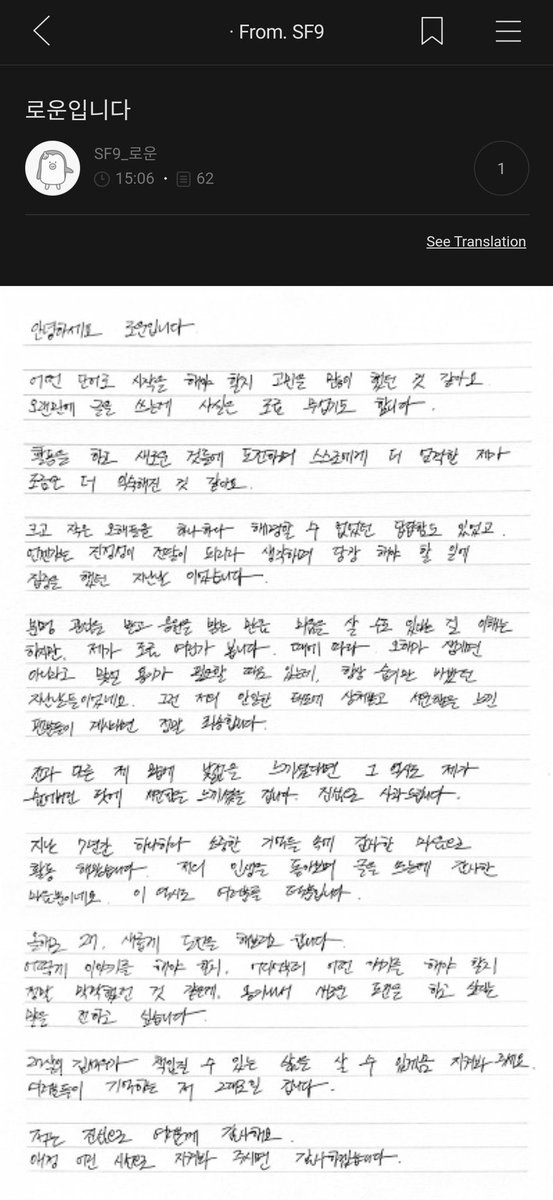 · From. SF9
로운입니다
SF9_로운
1
15:06 • 62
See Translation
안녕하세요 로운입니다
어떤 단어로 시작을 해야 할지 고민을 많이 했던 것 같아요
오랜만에 글을 쓰는게 사실은 조금 무섭기도 합니다.
활동을 하고 새로운 것들에 도전하며 스스로에게 더 엄격한 제가
조금은 더 익숙해진 것 같아요.
크고 작은 오해들을 하나하나 해명할 수 없었던 답답함도 있었고.
언젠가는 진정성이 전달이 되리라 생각하며 당장 해야 할 일에
집중을 했던 지난날 이었습니다.
분명 관심을 받고 응원을 받는 만큼 미움을 살 수도 있다는 걸 이해는
하지만, 제가 조금 여린가 봅니다. 때에 따라 오해가 생기면
아니라고 맞설 용기가 필요할 때도 있는데, 항상 숨기만 바빴던
지난날들이었네요. 그런 저의 안일한 태도에 상처받고 서운함을 느낀
팬분들이 계시다면 정말 죄송합니다.
전과 다른 제 모습에 낯섦을 느끼셨다면 그 역시도 제가
숨어버린 탓에 서운함도 느끼셨을 겁니다. 진심으로 사과드립니다.
지난 7년간 하나하나 소중한 기억들 속에 감사한 마음으로
활동 해왔습니다. 저의 인생을 돌아보며 글을 쓰는데 감사한
마음뿐이네요. 이 역시도 여러분들 덕분입니다.
올해로 27. 새롭게 도전을 해보려고 합니다.
어떻게 이야기를 해야 할지. 어디서부터 어떤 얘기를 해야 할지
정말 막막했던 것 같은데, 용기내서 새로운 도전을 하고 싶다는
말을 전하고 싶습니다.
27살의 김석우가 책임질 수 있는 삶을 살 수 있게끔 지켜봐 주세요.
여러분들이 기억하는 저 그대로일 겁니다.
저는 진심으로 여러분께 감사해요.
애정 어린 시선으로 지켜봐 주시면 감사하겠습니다.